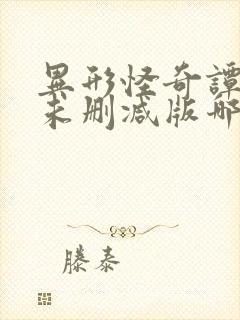 異形怪奇譚
未删减版哪
滕泰